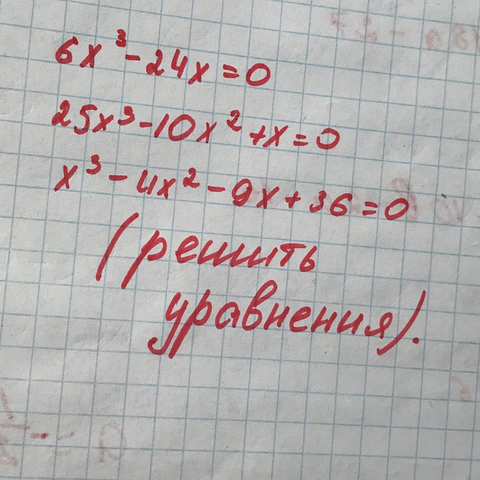 6x³-24x=0
25x³-10x²+x=0
x³-4x²-9x+36=0
(решить
уравнения).